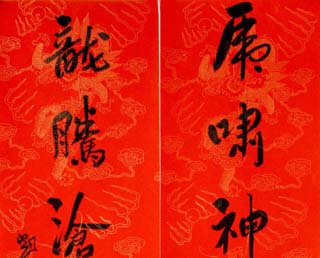 虎嘯神
龍騰滄